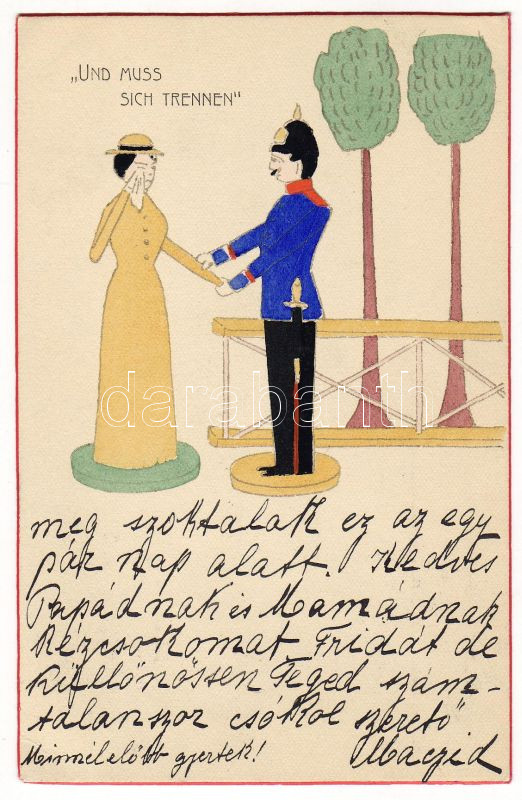 „UND MUSS
SICH TRENNEN"
darabanth
meg szoktalak ez az egy
pár nap alatt. Kedves
Papádnak és Mamádnak
Kézcsókomat Fridát de
küllönössen Téged szám-
talanszor csókol szerető
Minnél előbb gyertek! Maczid